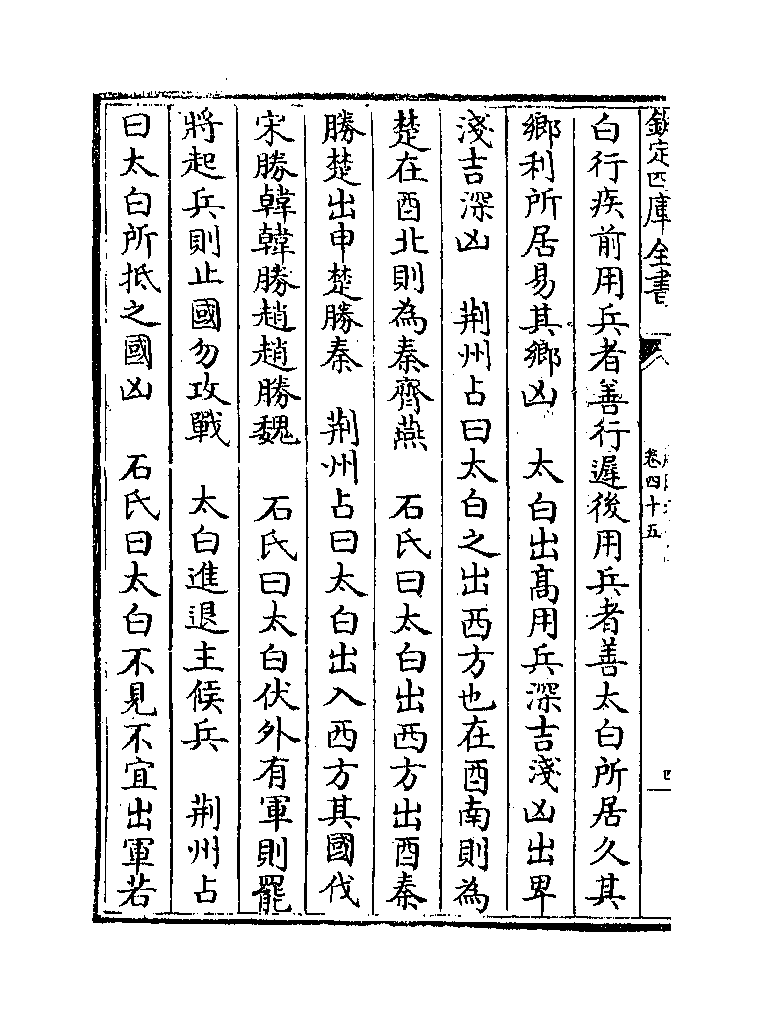 欽定四庫全書
卷四十五
四
白行疾前用兵者善行遲後用兵者善太白所居久其
鄉利所居易其鄉凶　太白出高用兵深吉淺凶出卑
淺吉深凶　荆州占曰太白之出西方也在酉南則為
楚在酉北則為秦齊燕　石氏曰太白出西方出酉秦
勝楚出申楚勝秦　荆州占曰太白出入西方其國伐
宋勝韓韓勝趙趙勝魏　石氏曰太白伏外有軍則罷
將起兵則止國勿攻戰　太白進退主候兵　荆州占
曰太白所抵之國凶　石氏曰太白不見不宜出軍若